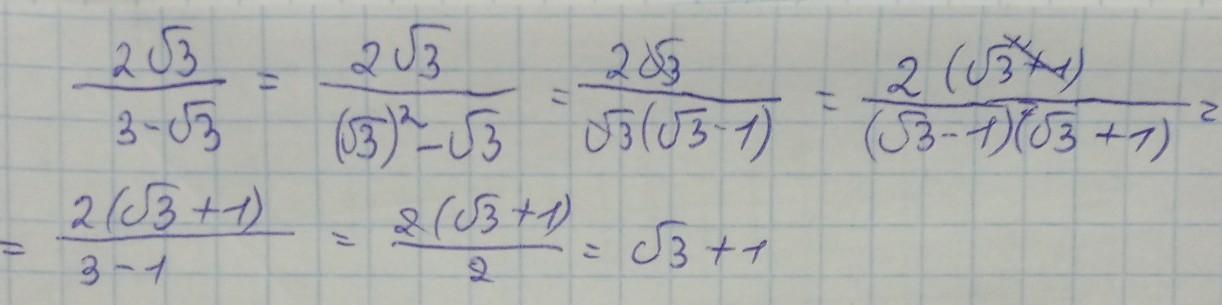 2√3 / (3-√3) = 2√3 / ((√3)²-√3) = 2√3 / (√3(√3-1)) = 2(√3+1) / ((√3-1)(√3+1)) =
= 2(√3+1) / (3-1) = 2(√3+1) / 2 = √3+1